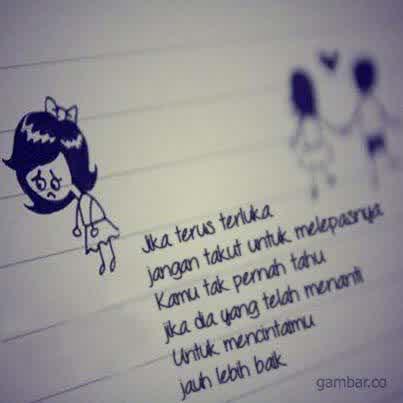 Jika terus terluka
jangan takut untuk melepasnya
Kamu tak pernah tahu
jika dia yang telah menanti
Untuk mencintaimu
jauh lebih baik
gambar.co